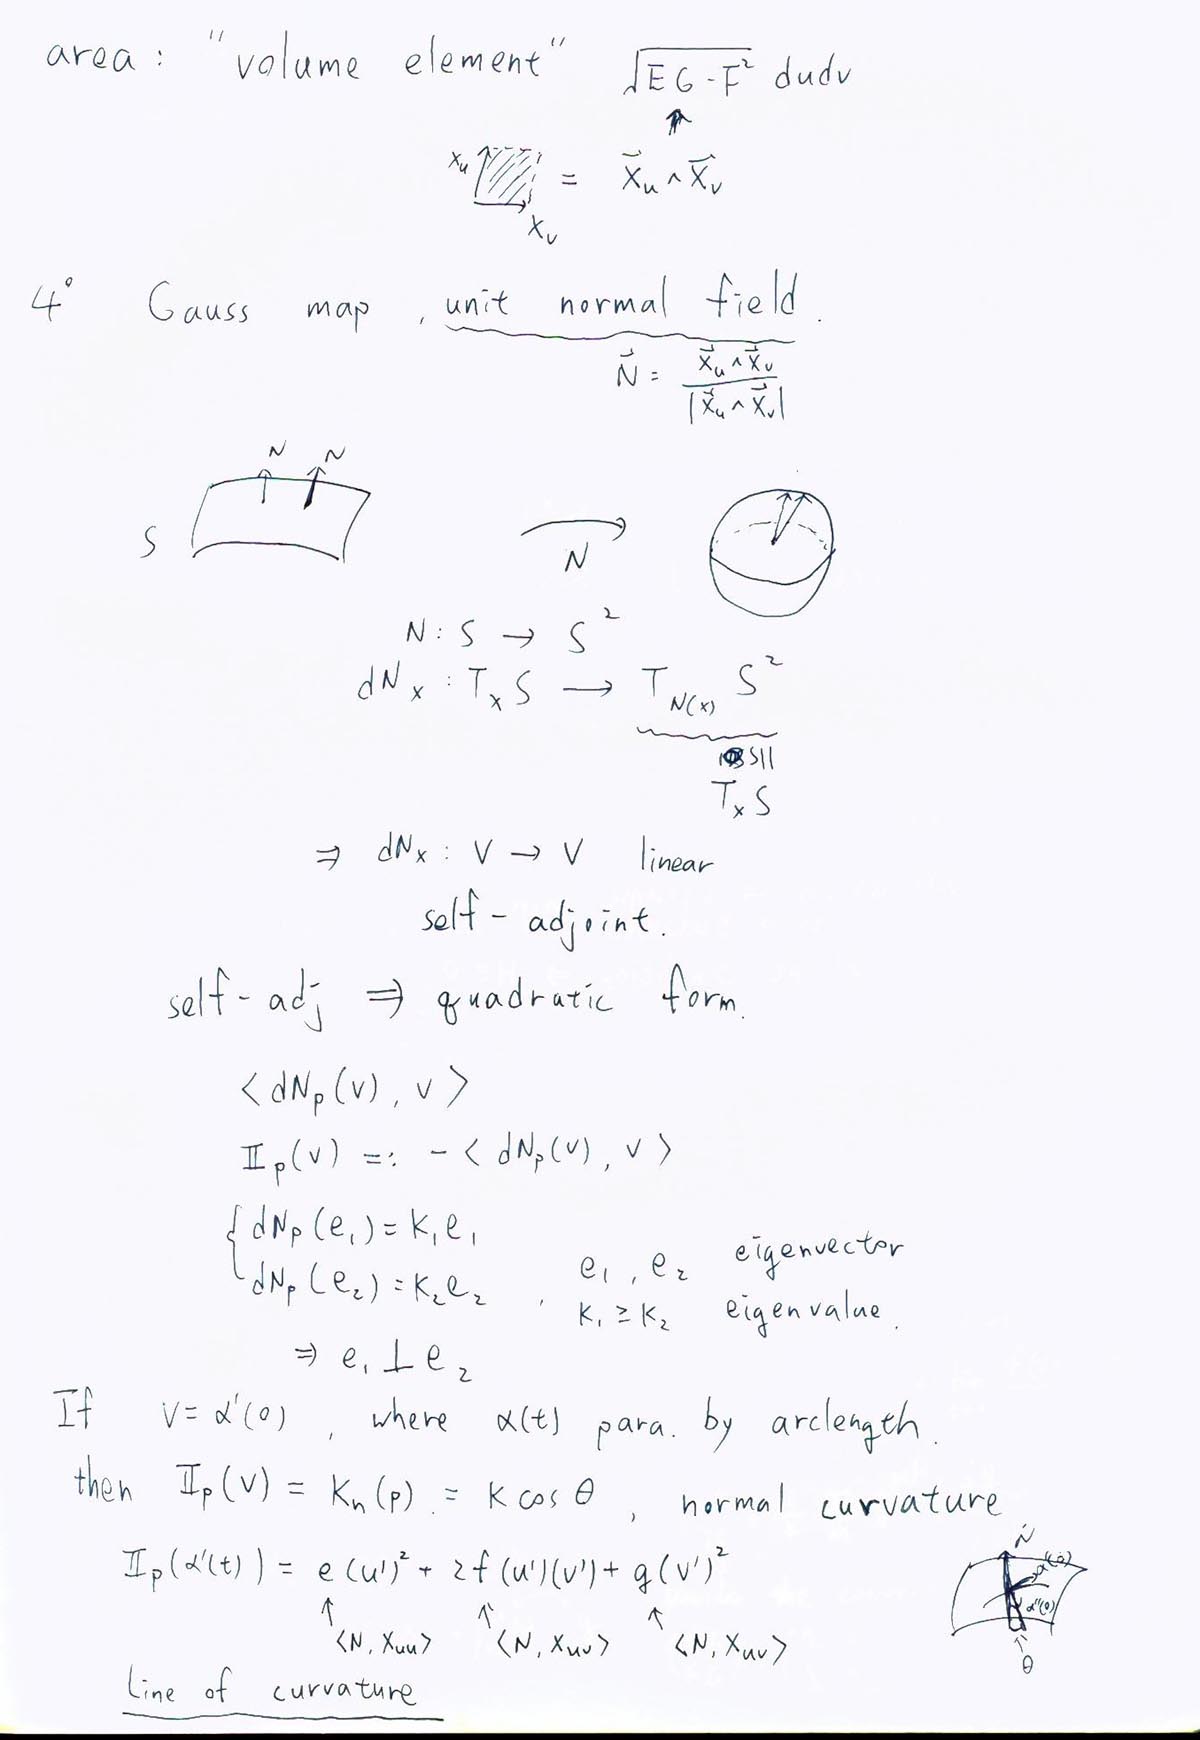 area: "volume element" √(EG-F²) dudv
↑
x_u = \vec{x}_u ∧ \vec{x}_v
x_v
4° Gauss map, unit normal field.
\vec{N} = \frac{\vec{x}_u ∧ \vec{x}_v}{|\vec{x}_u ∧ \vec{x}_v|}
N N
S
N
N: S → S²
dN_x : T_x S → T_{N(x)} S²
SII
T_x S
⇒ dN_x : V → V linear
self-adjoint.
self-adj ⇒ quadratic form.
<dN_p(v), v>
II_p(v) =: -<dN_p(v), v>
{ dN_p(e_1) = k_1 e_1
dN_p(e_2) = k_2 e_2 , e_1, e_2 eigenvector
k_1 ≥ k_2 eigenvalue.
⇒ e_1 ⊥ e_2
If v = α'(0) , where α(t) para. by arclength.
then II_p(v) = k_n(p) = k cos θ , normal curvature
N
II_p(α'(t)) = e(u')² + 2f(u')(v') + g(v')²
α'(0)
α''(0)
↑ ↑ ↑
<N, x_uu> <N, x_uv> <N, x_uv>
θ
Line of curvature